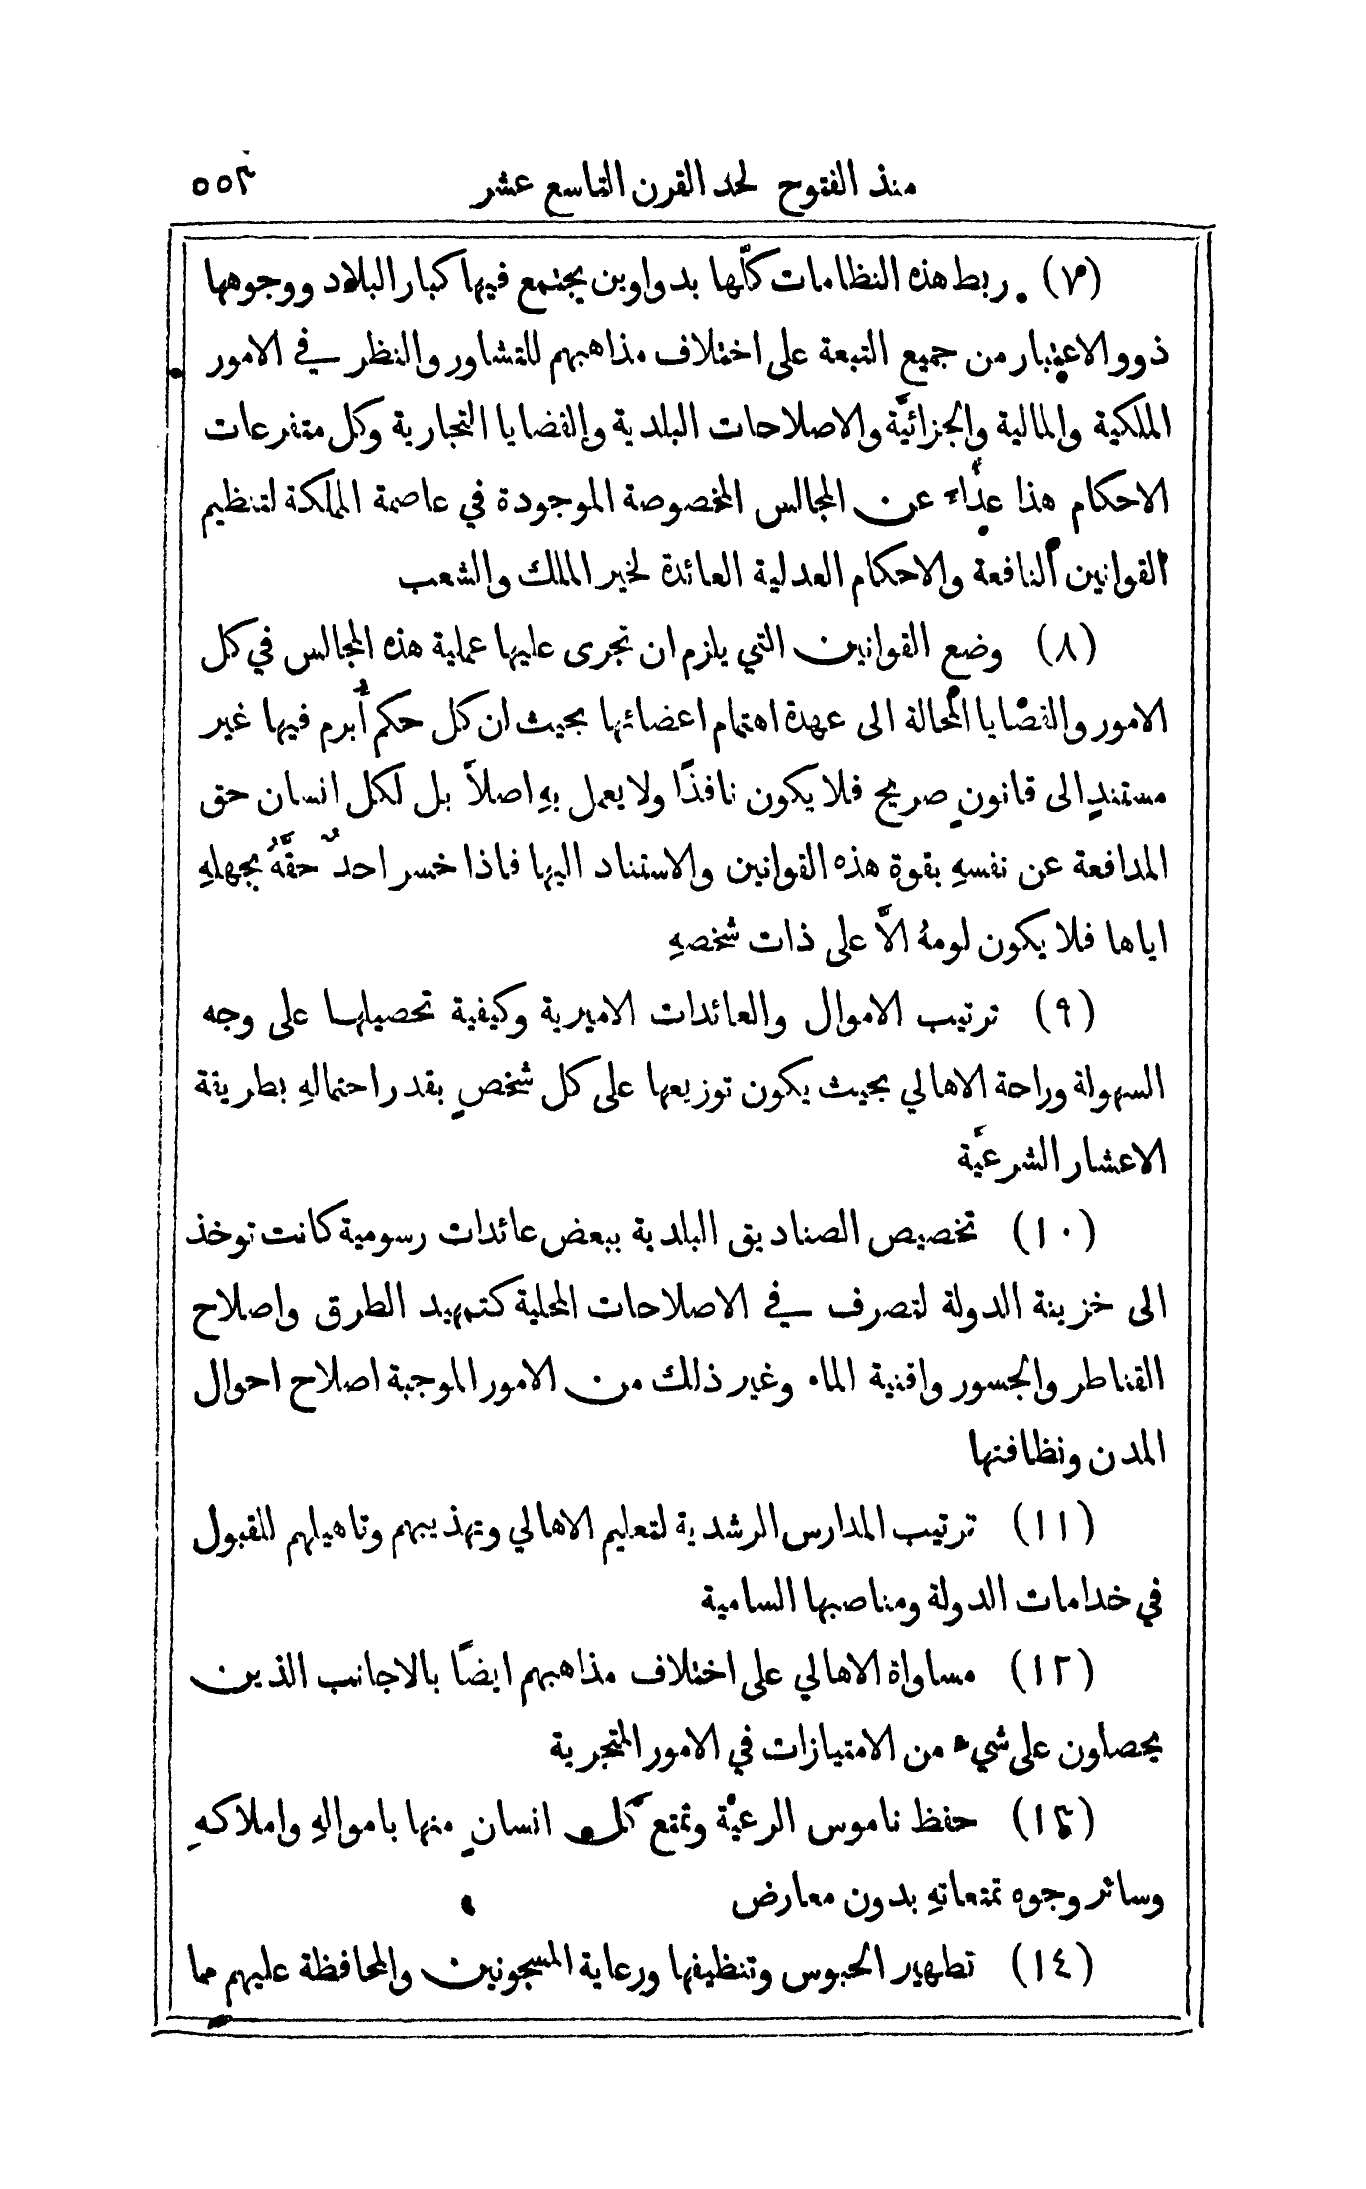 منذ الفتوح لحد القرن التاسع عشر ٥٥٣
(٧) ربط هذه النظامات كلّها بدواوين يجتمع فيها كبار البلاد ووجوهها
ذوو الاعتبار من جميع التبعة على اختلاف مذاهبهم للتشاور والنظر في الامور
الملكية والمالية والجزائيّة والاصلاحات البلدية والقضايا التجارية وكل متفرعات
الاحكام هذا عداء عن المجالس المخصوصة الموجودة في عاصمة المملكة لتنظيم
القوانين النافعة والاحكام العدلية العائدة لخير الملك والشعب
(٨) وضع القوانين التي يلزم ان تجرى عليها عملية هذه المجالس في كل
الامور والقضايا المحالة الى عهدة اهتمام اعضائها بحيث ان كل حكم أبرم فيها غير
مستندٍ الى قانونٍ صريح فلا يكون نافذًا ولا يعمل بهِ اصلاً بل لكل انسان حق
المدافعة عن نفسهِ بقوة هذه القوانين والاستناد اليها فاذا خسر احدٌ حقّهُ بجهلهِ
اياها فلا يكون لومهُ الاَّ على ذات شخصهِ
(٩) ترتيب الاموال والعائدات الاميرية وكيفية تحصيلها على وجه
السهولة وراحة الاهالي بحيث يكون توزيعها على كل شخصٍ بقدر احتمالهِ بطريقة
الاعشار الشرعيَّة
(١٠) تخصيص الصناديق البلدية ببعض عائدات رسومية كانت توخذ
الى خزينة الدولة لتصرف في الاصلاحات المحلية كتمهيد الطرق واصلاح
القناطر والجسور واقنية الماء وغير ذلك من الامور الموجبة اصلاح احوال
المدن ونظافتها
(١١) ترتيب المدارس الرشدية لتعليم الاهالي وتهذيبهم وتاهيلهم للقبول
في خدامات الدولة ومناصبها السامية
(١٢) مساواة الاهالي على اختلاف مذاهبهم ايضًا بالاجانب الذين
يحصلون على شيء من الامتيازات في الامور المتجرية
(١٣) حفظ ناموس الرعيّة وتمتع كل انسانٍ منها باموالهِ واملاكهِ
وسائر وجوه تمتعاتهِ بدون معارض
(١٤) تطهير الحبوس وتنظيفها ورعاية المسجونين والمحافظة عليهم مما